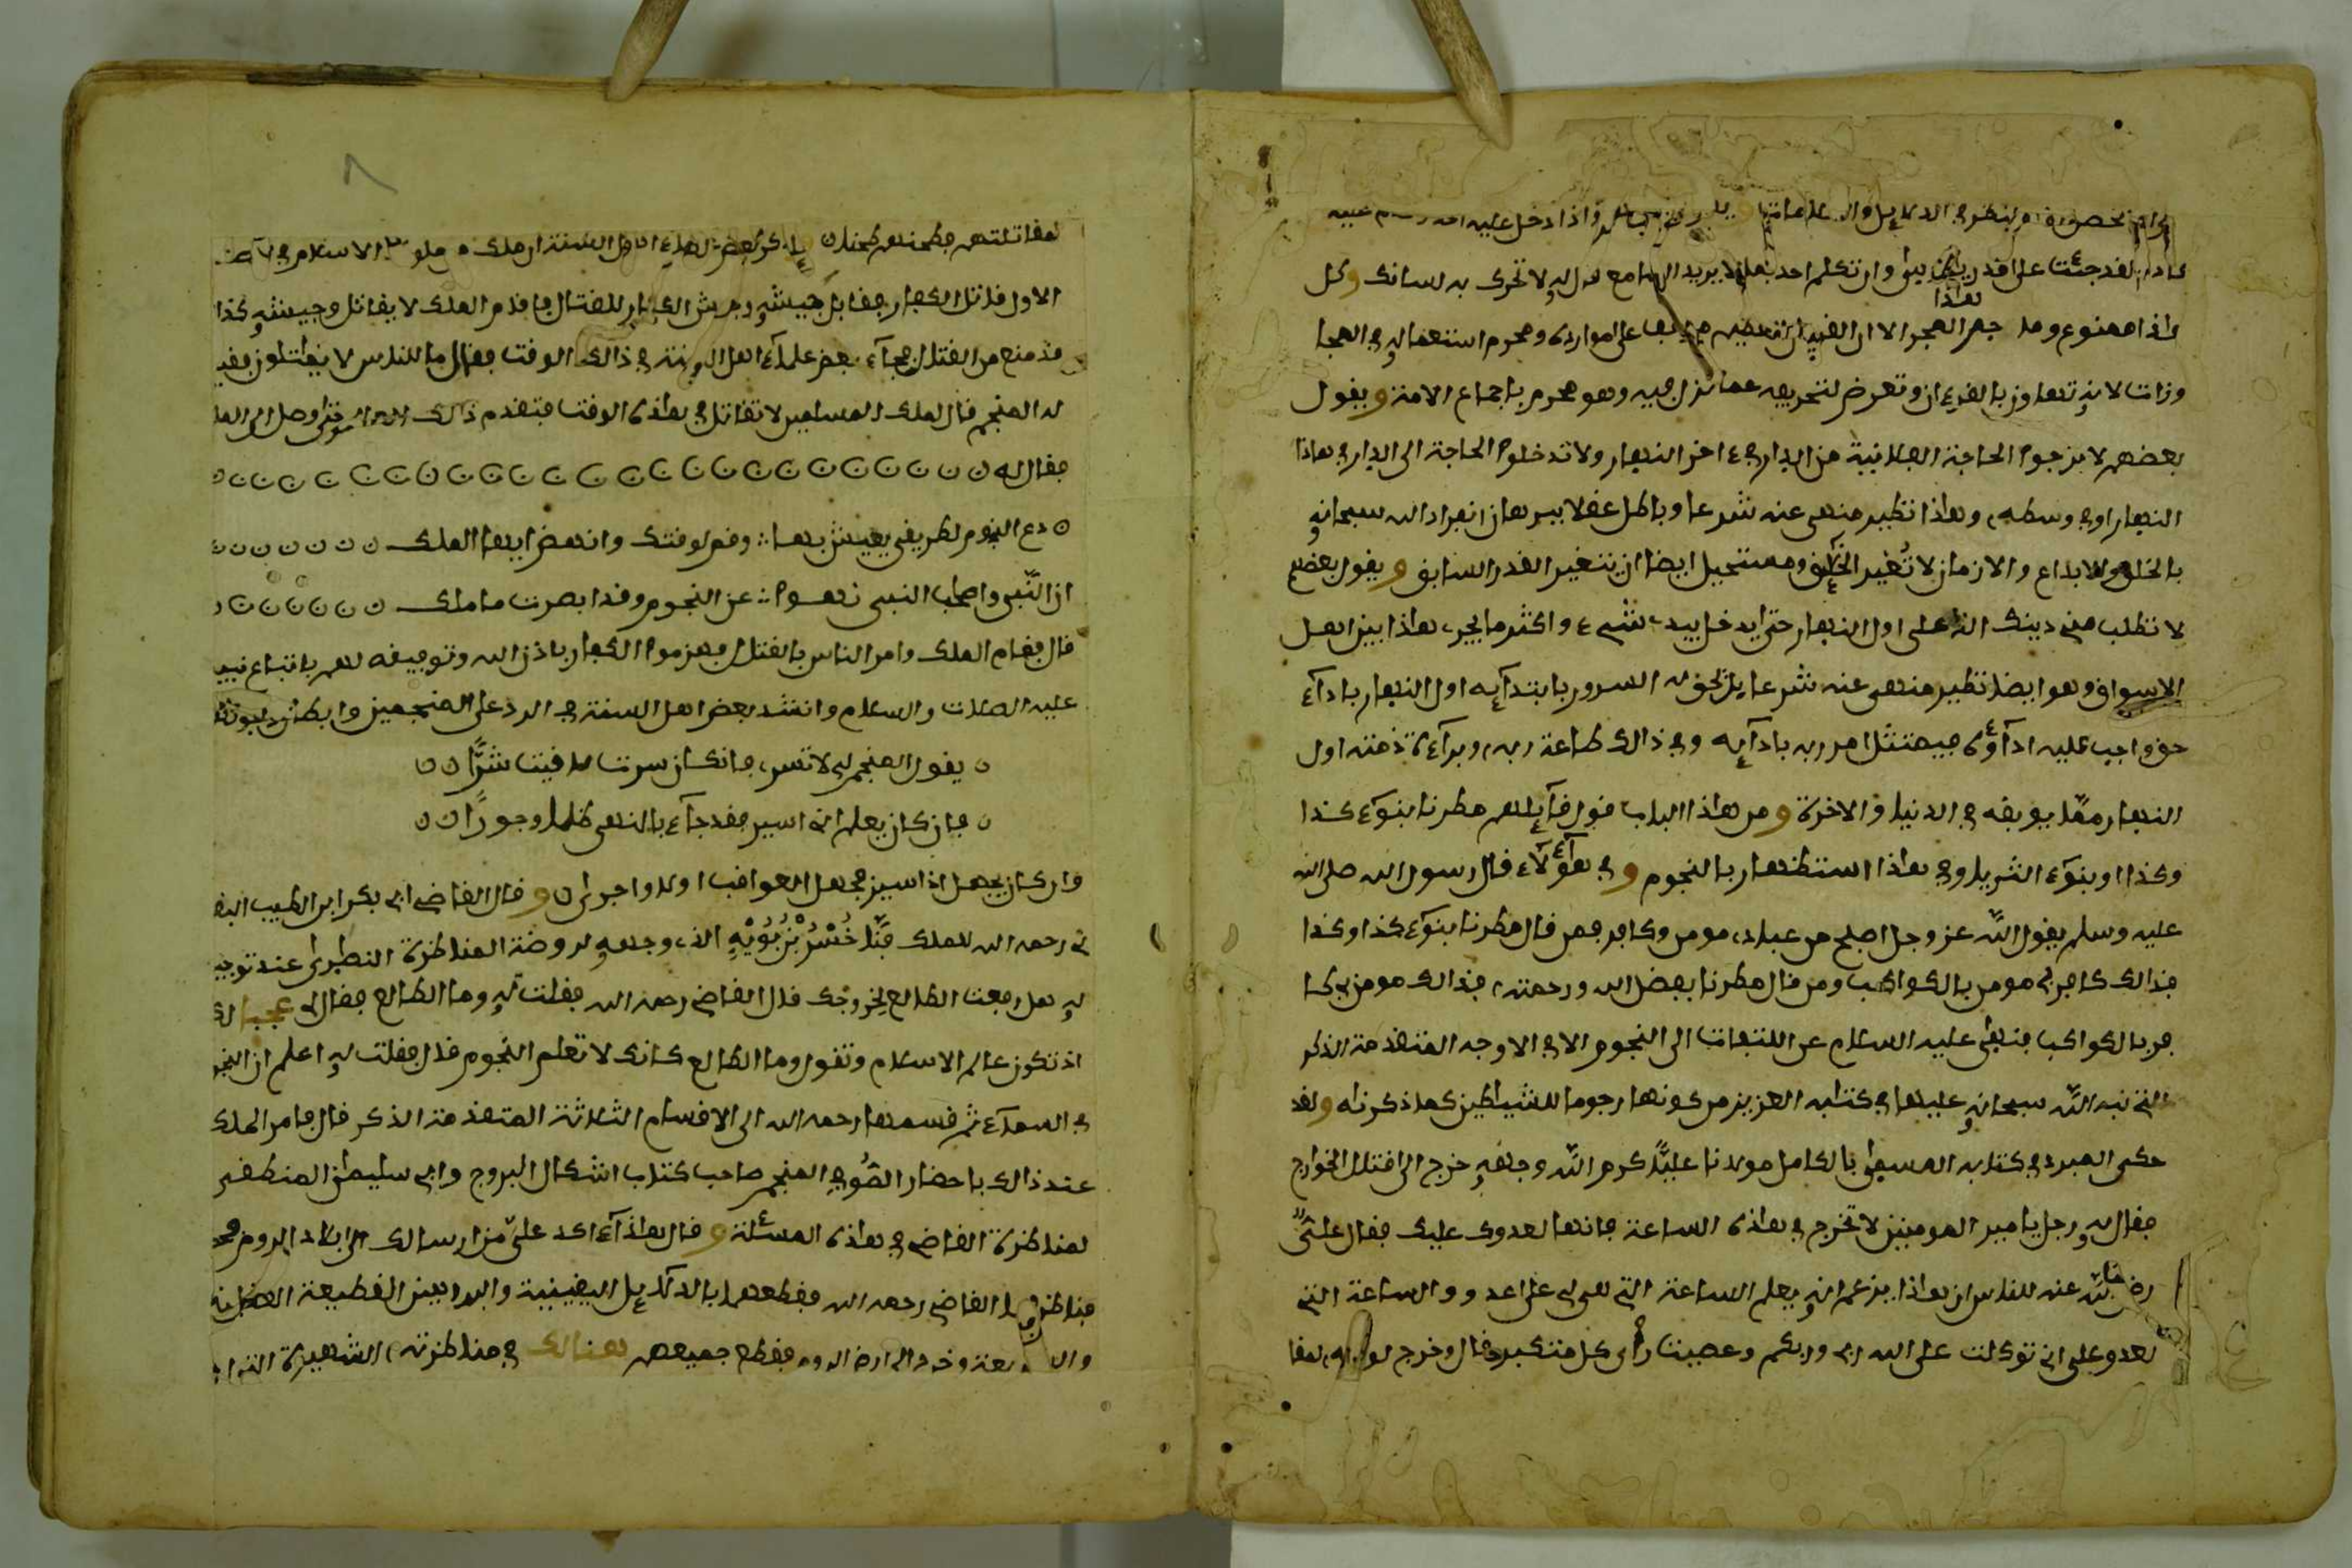 لقد جئت على قدر يا موسى وان تكلم احد السامع قال له لا تحرك به لسانك وكل
هذا ممنوع وما جهر الهجر الا ان القرءان على موارده ومحرم استعماله في الهجا
وزات لانه تهاون بالقرءان وتعرض لتحريفه عما نزل فيه وهو محرم باجماع الامة ويقول
بعضهم لا يخرجوا الحاجة الفلانية من الدار في ءاخر النهار ولا تدخلوا الحاجة الى الدار في هاذا
النهار او في وسطه وهاذا تطير منهى عنه شرعا وباطل عقلا ببرهان انفراد الله سبحانه
بالخلق والابداع والازمان لا تغير الخلق ومستحيل ايضا ان يتغير القدر السابق ويقول بعضهم
لا تطلب مني دينك الذي على اول النهار حتى يدخل بيدي شيء واكثر ما يجرى هاذا بين اهل
الاسواق وهو ايضا تطير منهى عنه شرعا بل تحق له السرور بابتدآيه اول النهار بادآء
حق واجب عليه ادآؤه فيمتثل امر ربه بادآيه وفي ذالك طاعة ربه وبرآءة ذمته اول
النهار مما يوبقه في الدنيا والاخرة ومن هاذا الباب قول قآيلهم مطرنا بنوء كذا
وكذا او بنوء الثريا وفي هاذا استظهار بالنجوم وفي هؤلآء قال رسول الله صلى الله
عليه وسلم يقول الله عز وجل اصبح من عبادي مومن وكافر فمن قال مطرنا بنوء كذا وكذا
فذالك كافر بي مومن بالكواكب ومن قال مطرنا بفضل الله ورحمته فذالك مومن بي كا
فر بالكواكب فنهى عليه السلام عن التفات الى النجوم الا في الاوجه المتقدمة الذكر
التي نبه الله سبحانه عليها في كتابه العزيز من كونها رجوما للشياطين كما ذكرناه ولقد
حكى المبرد في كتابه المسمى بالكامل مولانا عليا كرم الله وجهه خرج الى قتال الخوارج
فقال له رجل يا مير المومنين لا تخرج في هاذه الساعة فانها لعدوك عليك فقال على
رضى الله عنه للناس ان هاذا يزعم انه يعلم الساعة التي هى لى على اعدوو والساعة التي
لعدو على اني توكلت على الله ربي وربكم وعصيت رأى كل متكبر قال وخرج
لمقاتلتهم فطحنهم طحنا بعض اهل السنة ان ملك من ملوك الاسلام في
الاول قاتل الكفار فقابل جيشه جيش الكفار للقتال فاقام الملك لا يقاتل وجيشه كذا
قد منع من القتال فجآء بعض علمآء اهل السنة في ذالك الوقت فقال ما للناس لا يقاتلون فقيل
له المنجم قال لملك المسلمين لا تقاتل في هاذه الوقت فتقدم ذالك حتى وصل الى الملك
فقال له
دع النجوم لطرقي يعيش بها وقم لوقتك وانهض ايها الملك
ان النبى واصحاب النبى نهوا عن النجوم وقد ابصرت ما ملك
قال فقام الملك وامر الناس بالقتال فهزموا الكفار باذن الله وتوفيقه لهم باتباع نبيهم
عليه الصلات والسلام وانشد بعض اهل السنة في الرد على المنجمين وابطال
يقول المنجم لي لا تسر فانك ان سرت لاقيت شرا
فان كان يعلم انى اسير فقد جآء بالنهى ظلما وجورا
وان كان يجهل اني اسير فجهل العواقب اولا واجرى وقال القاضي ابي بكر ابن الطيب الباقلا
ني رحمه الله للملك فنا خسر بن بويه الذي وجهه لروضة المناظرة النصارى عند توجيهه
له هل رفعت الطالع لخروجك قال القاضي رحمه الله فقلت له وما الطالع فقال لى عجبا لك
اذ تكون عالم الاسلام وتقول وما الطالع كانك لا تعلم النجوم قال فقلت له اعلم ان النجوم
في السمآء ثم قسمها رحمه الله الى الاقسام الثلاثة المتقدمة الذكر قال فامر الملك
عند ذالك باحضار الصوفي المنجم صاحب كتاب اشكال البروج وابي سليمان المنطقى
لمناظرة القاضي في هاذه المسئلة وقال هاذا آءاكد على من ارسالك الى بلاد الروم
فناظرهما القاضي رحمه الله فقطعهما بالدلآيل اليقينية والبراهين القطيعة
الى ارض الروم فقطع جميعهم هنالك في مناظرته الشهيرة